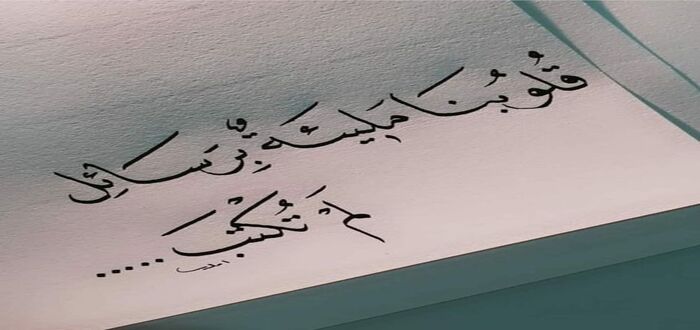 قُلُوبُنا مَليئة بِرَسَائِل
لَمْ تُكْتَبْ .....